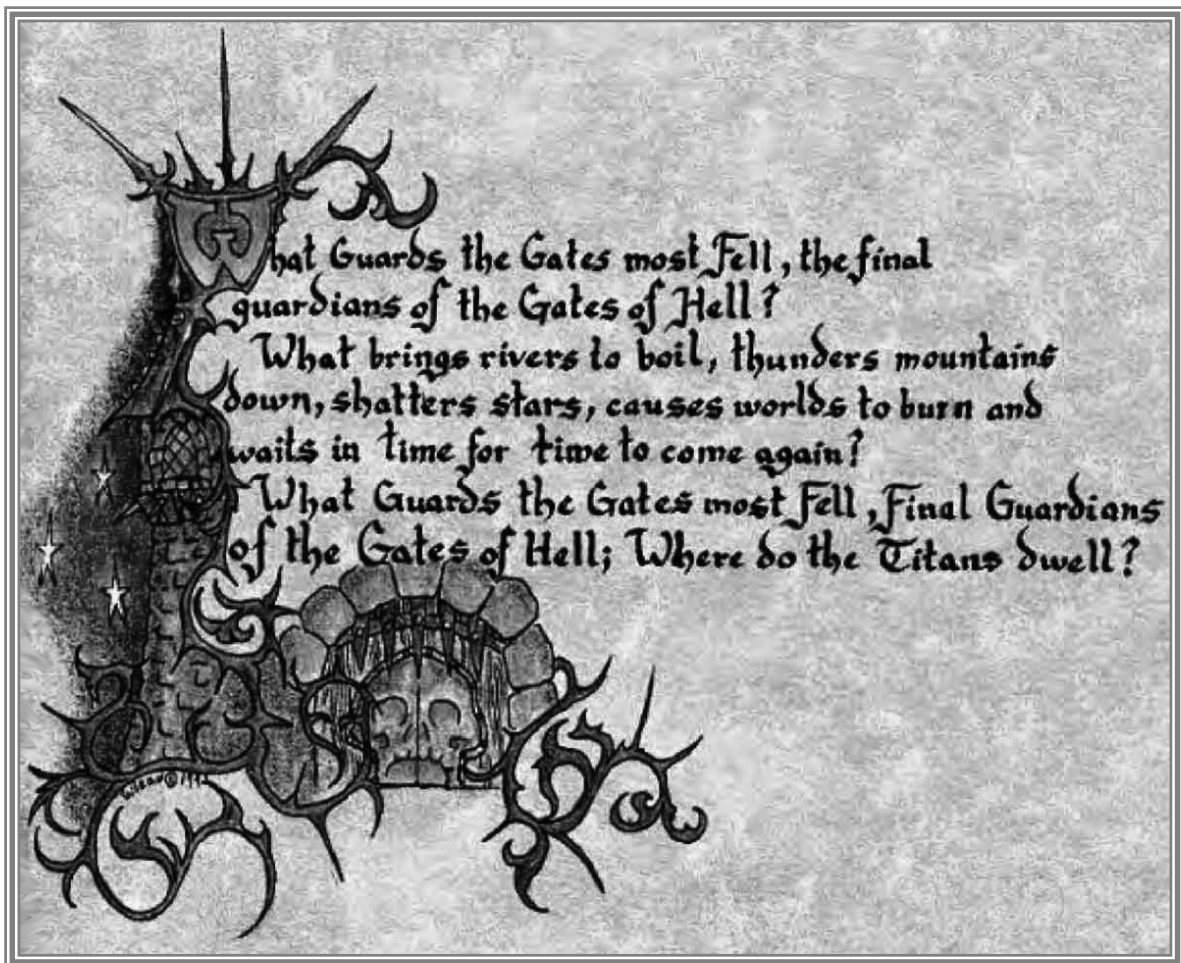 What Guards the Gates most Fell, the final
guardians of the Gates of Hell?
What brings rivers to boil, thunders mountains
down, shatters stars, causes worlds to burn and
waits in time for time to come again?
What Guards the Gates most Fell, Final Guardians
of the Gates of Hell; Where do the Titans dwell?